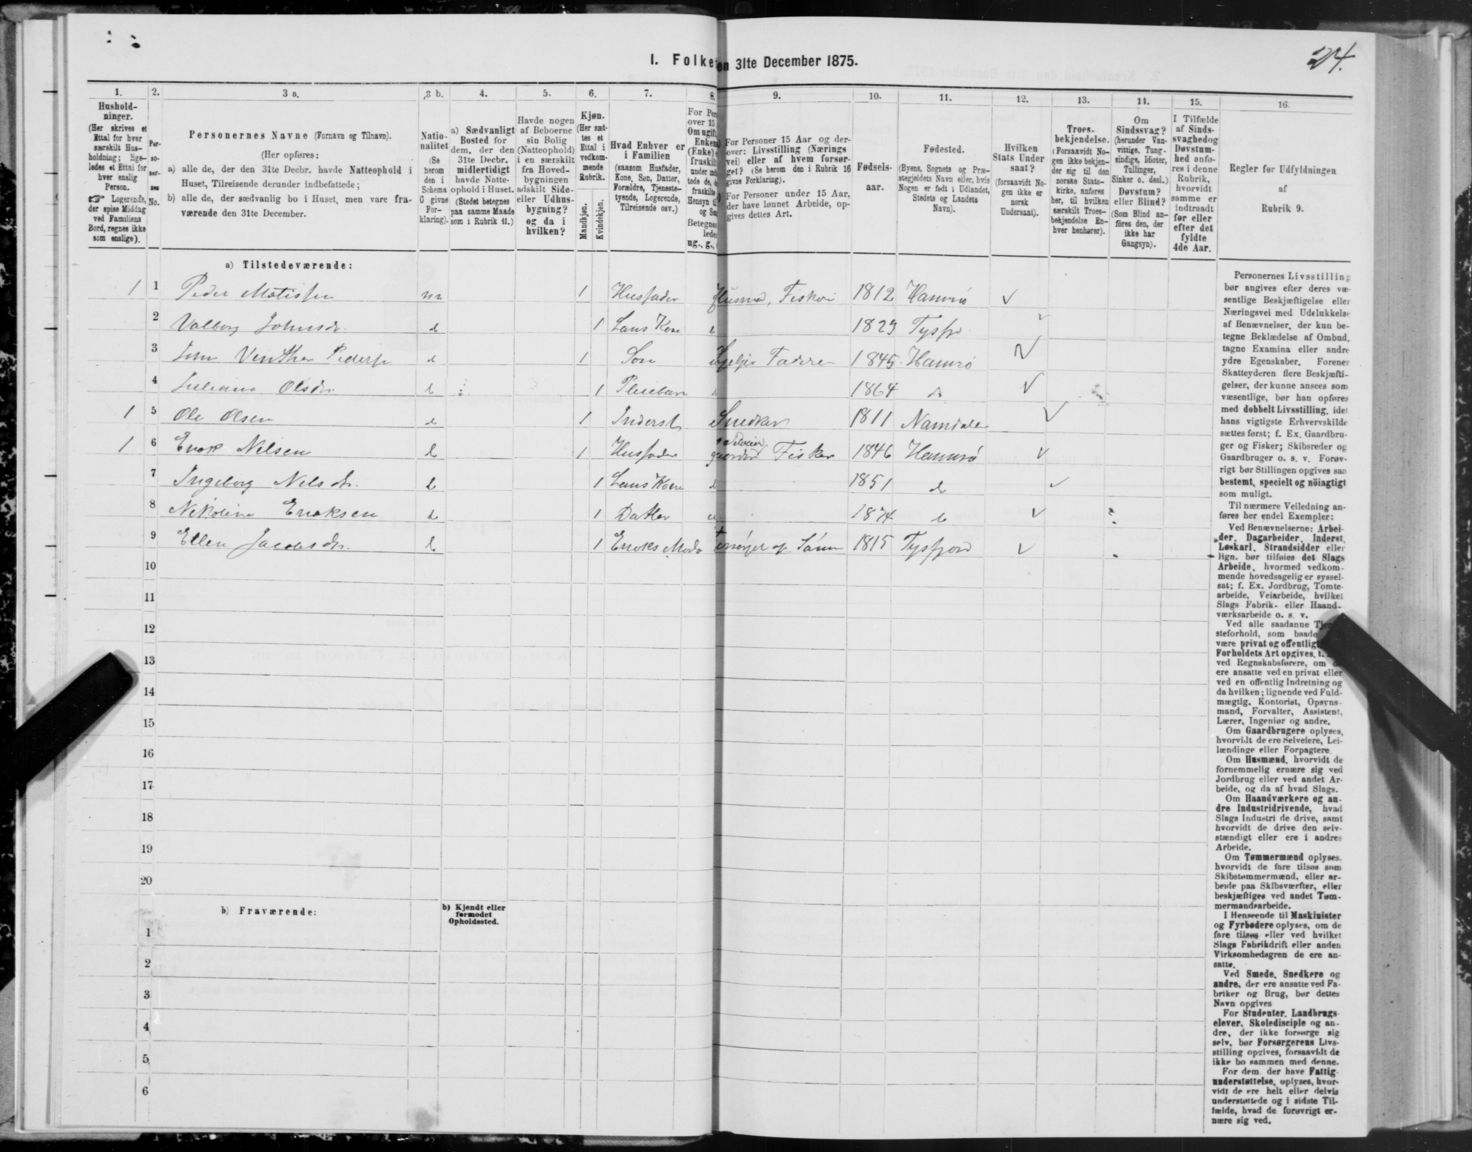 24.
I. Folke
en 31te December 1875.
1. 2. 3 a. 3 b. 4. 5. 6. 7. 8. 9. 10. 11. 12. 13. 14. 15. 16.
Hushold-
ninger.
(Her skrives et
Ettal for hver
særskilt Hus-
holdning; lige-
ledes et Ettal for
hver enslig
Person.
☞ Logerende,
der spise Middag
ved Familiens
Bord, regnes ikke
som enslige).
Per-
so-
ner-
nes
No.
Personernes Navne (Fornavn og Tilnavn).
(Her opføres:
a) alle de, der den 31te Decbr. havde Natteophold i
Huset, Tilreisende derunder indbefattede;
b) alle de, der sædvanlig bo i Huset, men vare fra-
værende den 31te December.
Natio-
nalitet
(Se
herom
den i
Schema
G givne
For-
klaring).
a) Sædvanligt
Bosted for
dem, der den
31te Decbr.
midlertidigt
havde Natte-
ophold i Huset.
(Stedet betegnes
paa samme Maade
som i Rubrik 11.)
Havde nogen
af Beboerne
sin Bolig
(Natteophold)
i en særskilt
fra Hoved-
bygningen
adskilt Side-
eller Udhus-
bygning?
og da i
hvilken?
Kjøn.
(Her sæt-
tes et
Ettal i
vedkom-
mende
Rubrik.
Mandkjøn.
Kvindekjøn.
Hvad Enhver er
i Familien
(saasom Husfader,
Kone, Søn, Datter,
Forældre, Tjeneste-
tyende, Logerende,
Tilreisende osv.)
For Personer 15 Aar og der-
over: Livsstilling (Nærings
vei) eller af hvem forsør-
get? (Se herom den i Rubrik 16
givne Forklaring).
For Personer under 15 Aar,
der have lønnet Arbeide, op-
gives dettes Art.
Fødsels-
aar.
Fødested.
(Byens, Sognets og Præ-
stegjeldets Navn eller, hvis
Nogen er født i Udlandet,
Stedets og Landets
Navn).
Hvilken
Stats Under
saat?
(forsaavidt No-
gen ikke er
norsk
Undersaat).
Troes-
bekjendelse.
(Forsaavidt No-
gen ikke bekjen-
der sig til den
norske Stats-
kirke, anføres
her, til hvilken
særskilt Troes-
bekjendelse En-
hver henhører).
Om
Sindssvag?
(herunder Van-
vittige, Tung-
sindige, Idioter,
Tullinger,
Sinker o. desl.)
Døvstum?
eller Blind?
(Som Blind an-
føres den, der
ikke har
Gangsyn).
I Tilfælde
af Sinds-
svaghed og
Døvstum-
hed anfø-
res i denne
Rubrik,
hvorvidt
samme er
indtraadt
før eller
efter det
fyldte
4de Aar.
Regler før Udfyldningen
af
Rubrik 9.
a) Tilstedeværende:
1 1 Peder Matissen n 1 Husfader Husmd, Fisker 1812 Hamrø
2 Valborg Johnsdr. d 1 Hans Kone 1829 Tysfj
3 Winther Peders d 1 Søn Hjelper Faderen 1845 Hamrø
4 Juliane Olsdr. d 1 Pleiebarn 1864 do
1 5 Ole Olsen d 1 Inderst Snedker 1811 Namdalen
1 6 Enok Nilsen d 1 Husfader Fisker 1846 Hamrø
7 Ingeborg Nilsdr. d 1 Hans Kone 1851 do
8 Nikoline Enoksen d 1 Datter 1874 do
9 Ellen Jacobsdr. d 1 Enoks Moder Forsørges af Sønn 1815 Tysfjord
10
11
12
13
14
15
16
17
18
19
20
b) Fraværende:
b) Kjendt eller
formodet
Opholdssted.
1
2
3
4
5
6
Personernes Livsstilling
bør angives efter deres væ-
sentlige Beskjæftigelse eller
Næringsvei med Udelukkelse
af Benævnelser, der kun be-
tegne Beklædelse af Ombud,
tagne Examina eller andre
ydre Egenskaber. Forener
Skatteyderen flere Beskjæfti-
gelser, der kunne ansees som
væsentlige, bør han opføres
med dobbelt Livsstilling, idet
hans vigtigste Erhvervskilde
sættes først; f. Ex. Gaardbru-
ger og Fisker; Skibsreder og
Gaardbruger o. s. v. Forøv-
rigt bør Stillingen opgives saa
bestemt, specielt og nøiagtigt
som muligt.
Til nærmere Veiledning an-
føres her endel Exempler:
Ved Benævnelserne: Arbei-
der, Dagarbeider, Inderst,
Løskarl, Strandsidder eller
lign. bør tilføies det Slags
Arbeide, hvormed vedkom-
mende hovedsagelig er syssel-
sat; f. Ex. Jordbrug, Tomte-
arbeide, Veiarbeide, hvilket
Slags Fabrik- eller Haand-
værksarbeide o. s. v.
Ved alle saadanne
steforhold, som baade
være privat og offentligt,
Forholdets Art opgives,
ved Regnskabsførere, om
ere ansatte ved en privat eller
ved en offentlig Indretning og
da hvilken; lignende ved Fuld-
mægtig, Kontorist, Opsyns-
mand, Forvalter, Assistent,
Lærer, Ingeniør og andre.
Om Gaardbrugere oplyses,
hvorvidt de ere Selveiere, Lei-
lændinge eller Forpagtere.
Om Husmænd, hvorvidt de
fornemmelig ernære sig ved
Jordbrug eller ved andet Ar-
beide, og da af hvad Slags.
Om Haandværkere og an-
dre Industridrivende, hvad
Slags Industri de drive, samt
hvorvidt de drive den selv-
stændigt eller ere i andres
Arbeide.
Om Tømmermænd oplyses,
hvorvidt de fare tilsøs som
Skibstømmermænd, eller ar-
beide paa Skibsværfter, eller
beskjæftiges ved andet Tøm-
mermandsarbeide.
I Henseende til Maskinister
og Fyrbødere oplyses, om de
fare tilsøs eller ved hvilket
Slags Fabrikdrift eller anden
Virksomhedsgren de ere an-
satte.
Ved Smede, Snedkere og
andre, der ere ansatte ved Fa-
briker og Brug, bør dettes
Navn opgives
For Studenter, Landbrugs-
elever, Skoledisciple og an-
dre, der ikke forsørge sig
selv, bør Forsørgerens Livs-
stilling opgives, forsaavidt de
ikke bo sammen med denne.
For dem, der have Fattig-
understøttelse, oplyses, hvor-
vidt de ere helt eller delvis
understøttede og i sidste Til-
fælde, hvad de forøvrigt er-
nære sig ved.